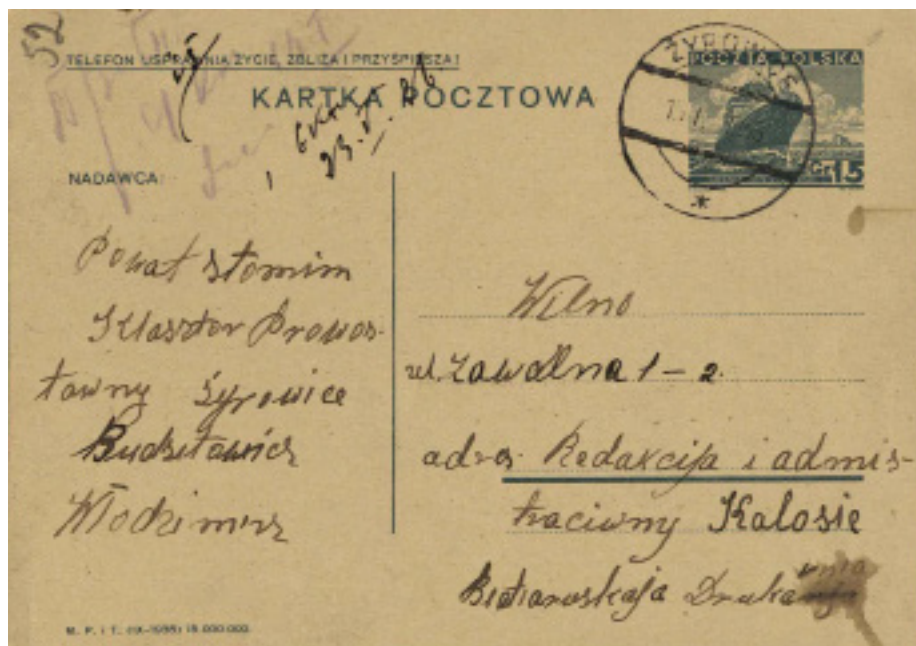 52
TELEFON USPRAWNIA ŻYCIE, ZBLIŻA I PRZYŚPIESZA!
KARTKA POCZTOWA
POCZTA POLSKA
Gr 15
NADAWCA:
Powat Słonim
Klasztor Prowos-
ławny Żyrowice
Budziławicz
Włodzimerz
Wilno
ul. Zawalna 1-2.
adres. Redakcija i admis-
traciwny Kalosie
Białaruskaja Druka
M. P. i T. (IX-1935) 15.000.000.